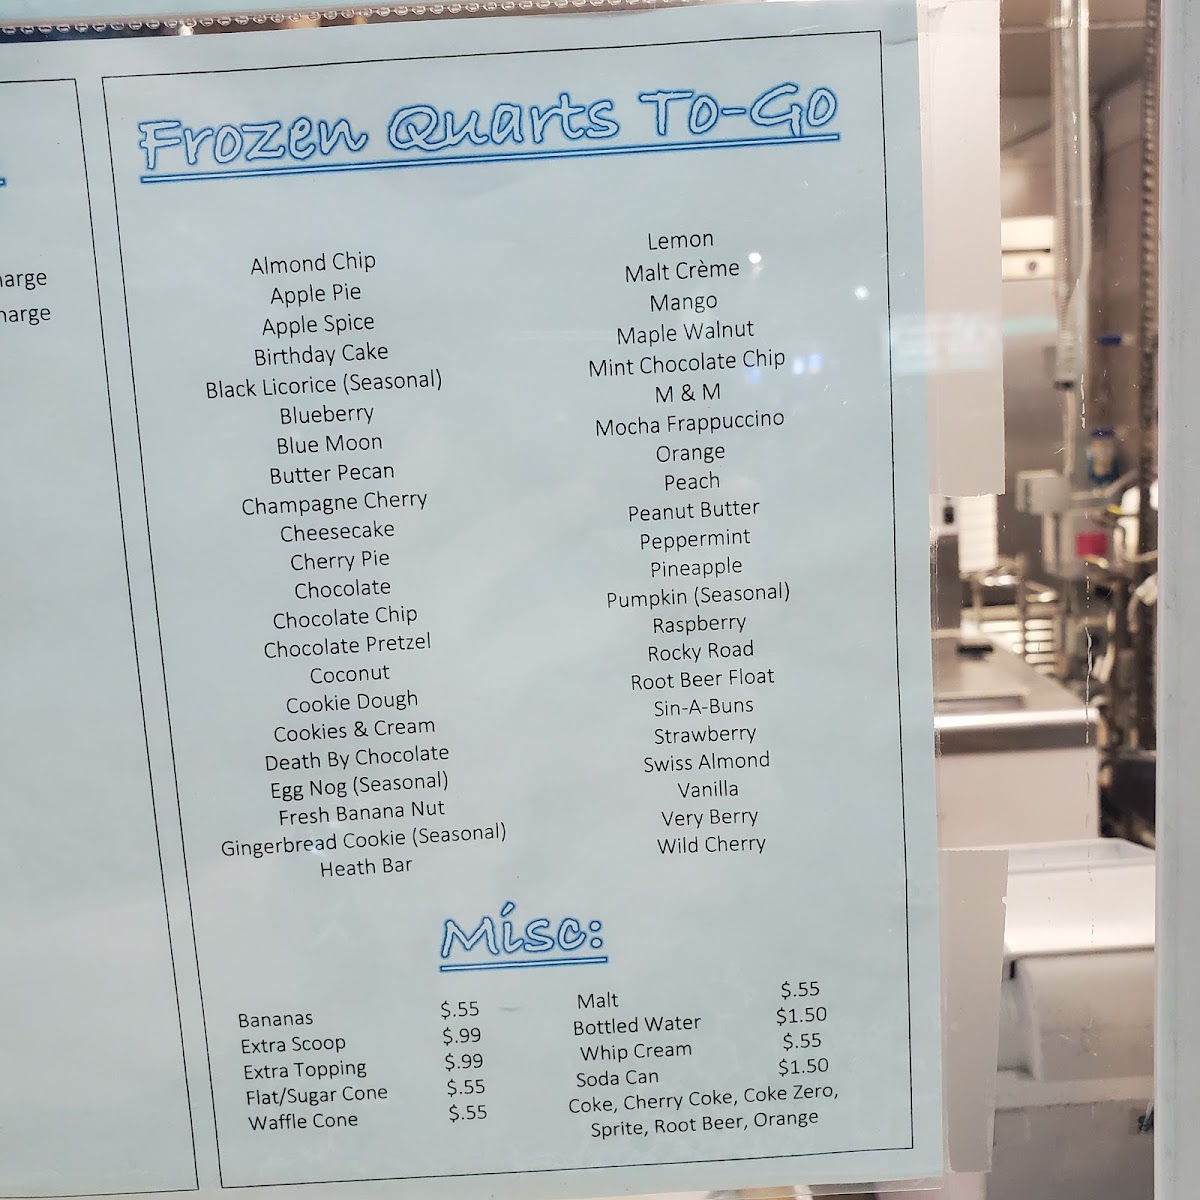 harge
harge
Frozen Quarts To-Go
Almond Chip
Apple Pie
Apple Spice
Birthday Cake
Black Licorice (Seasonal)
Blueberry
Blue Moon
Butter Pecan
Champagne Cherry
Cheesecake
Cherry Pie
Chocolate
Chocolate Chip
Chocolate Pretzel
Coconut
Cookie Dough
Cookies & Cream
Death By Chocolate
Egg Nog (Seasonal)
Fresh Banana Nut
Gingerbread Cookie (Seasonal)
Heath Bar
Lemon
Malt Crème
Mango
Maple Walnut
Mint Chocolate Chip
M & M
Mocha Frappuccino
Orange
Peach
Peanut Butter
Peppermint
Pineapple
Pumpkin (Seasonal)
Raspberry
Rocky Road
Root Beer Float
Sin-A-Buns
Strawberry
Swiss Almond
Vanilla
Very Berry
Wild Cherry
Misc:
Bananas $.55
Extra Scoop $.99
Extra Topping $.99
Flat/Sugar Cone $.55
Waffle Cone $.55
Malt $.55
Bottled Water $1.50
Whip Cream $.55
Soda Can $1.50
Coke, Cherry Coke, Coke Zero,
Sprite, Root Beer, Orange